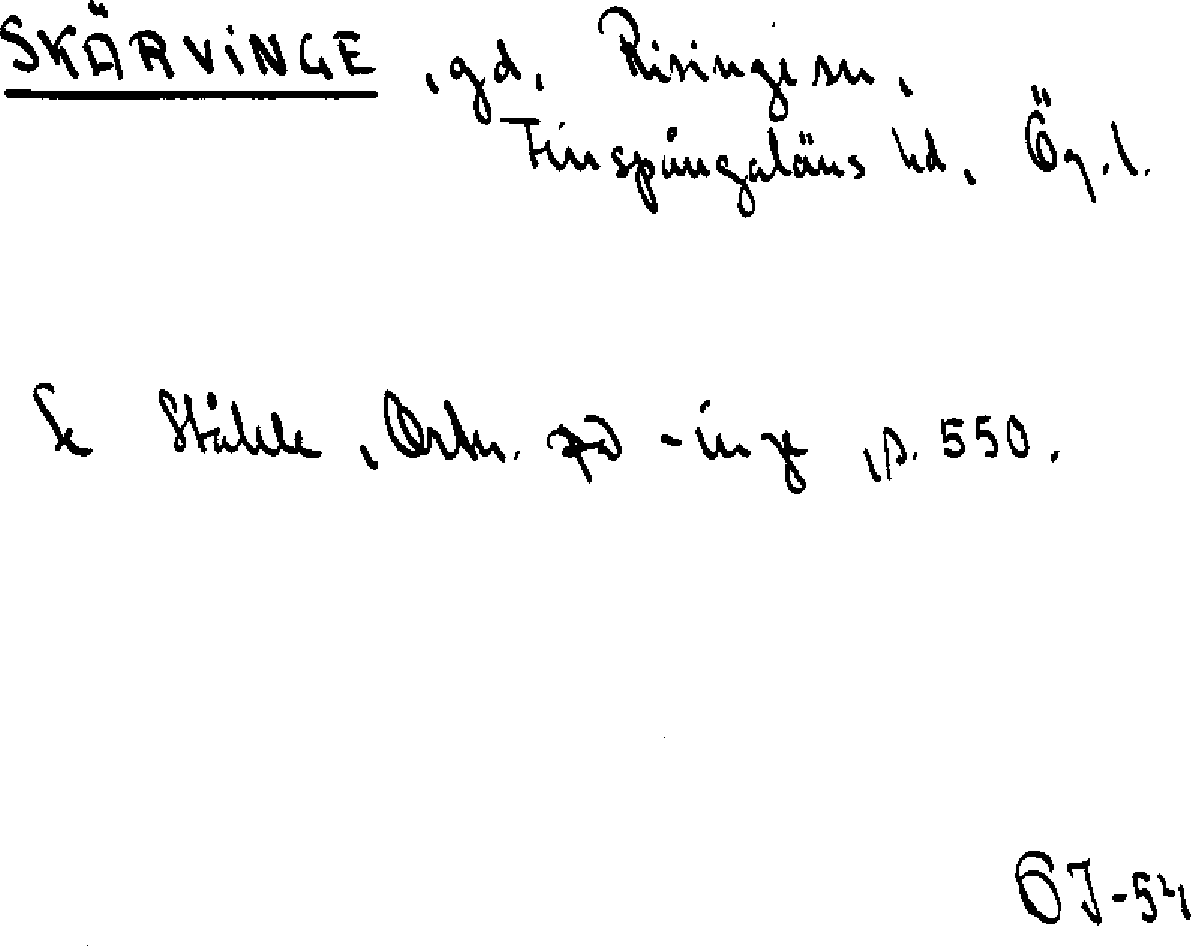 SKÄRVINGE, gd, Risinge sn,
Finspångaläns hd, Ög. l.
Se Ståhle, Ortn. på -inge, s. 550.
ÖJ-54